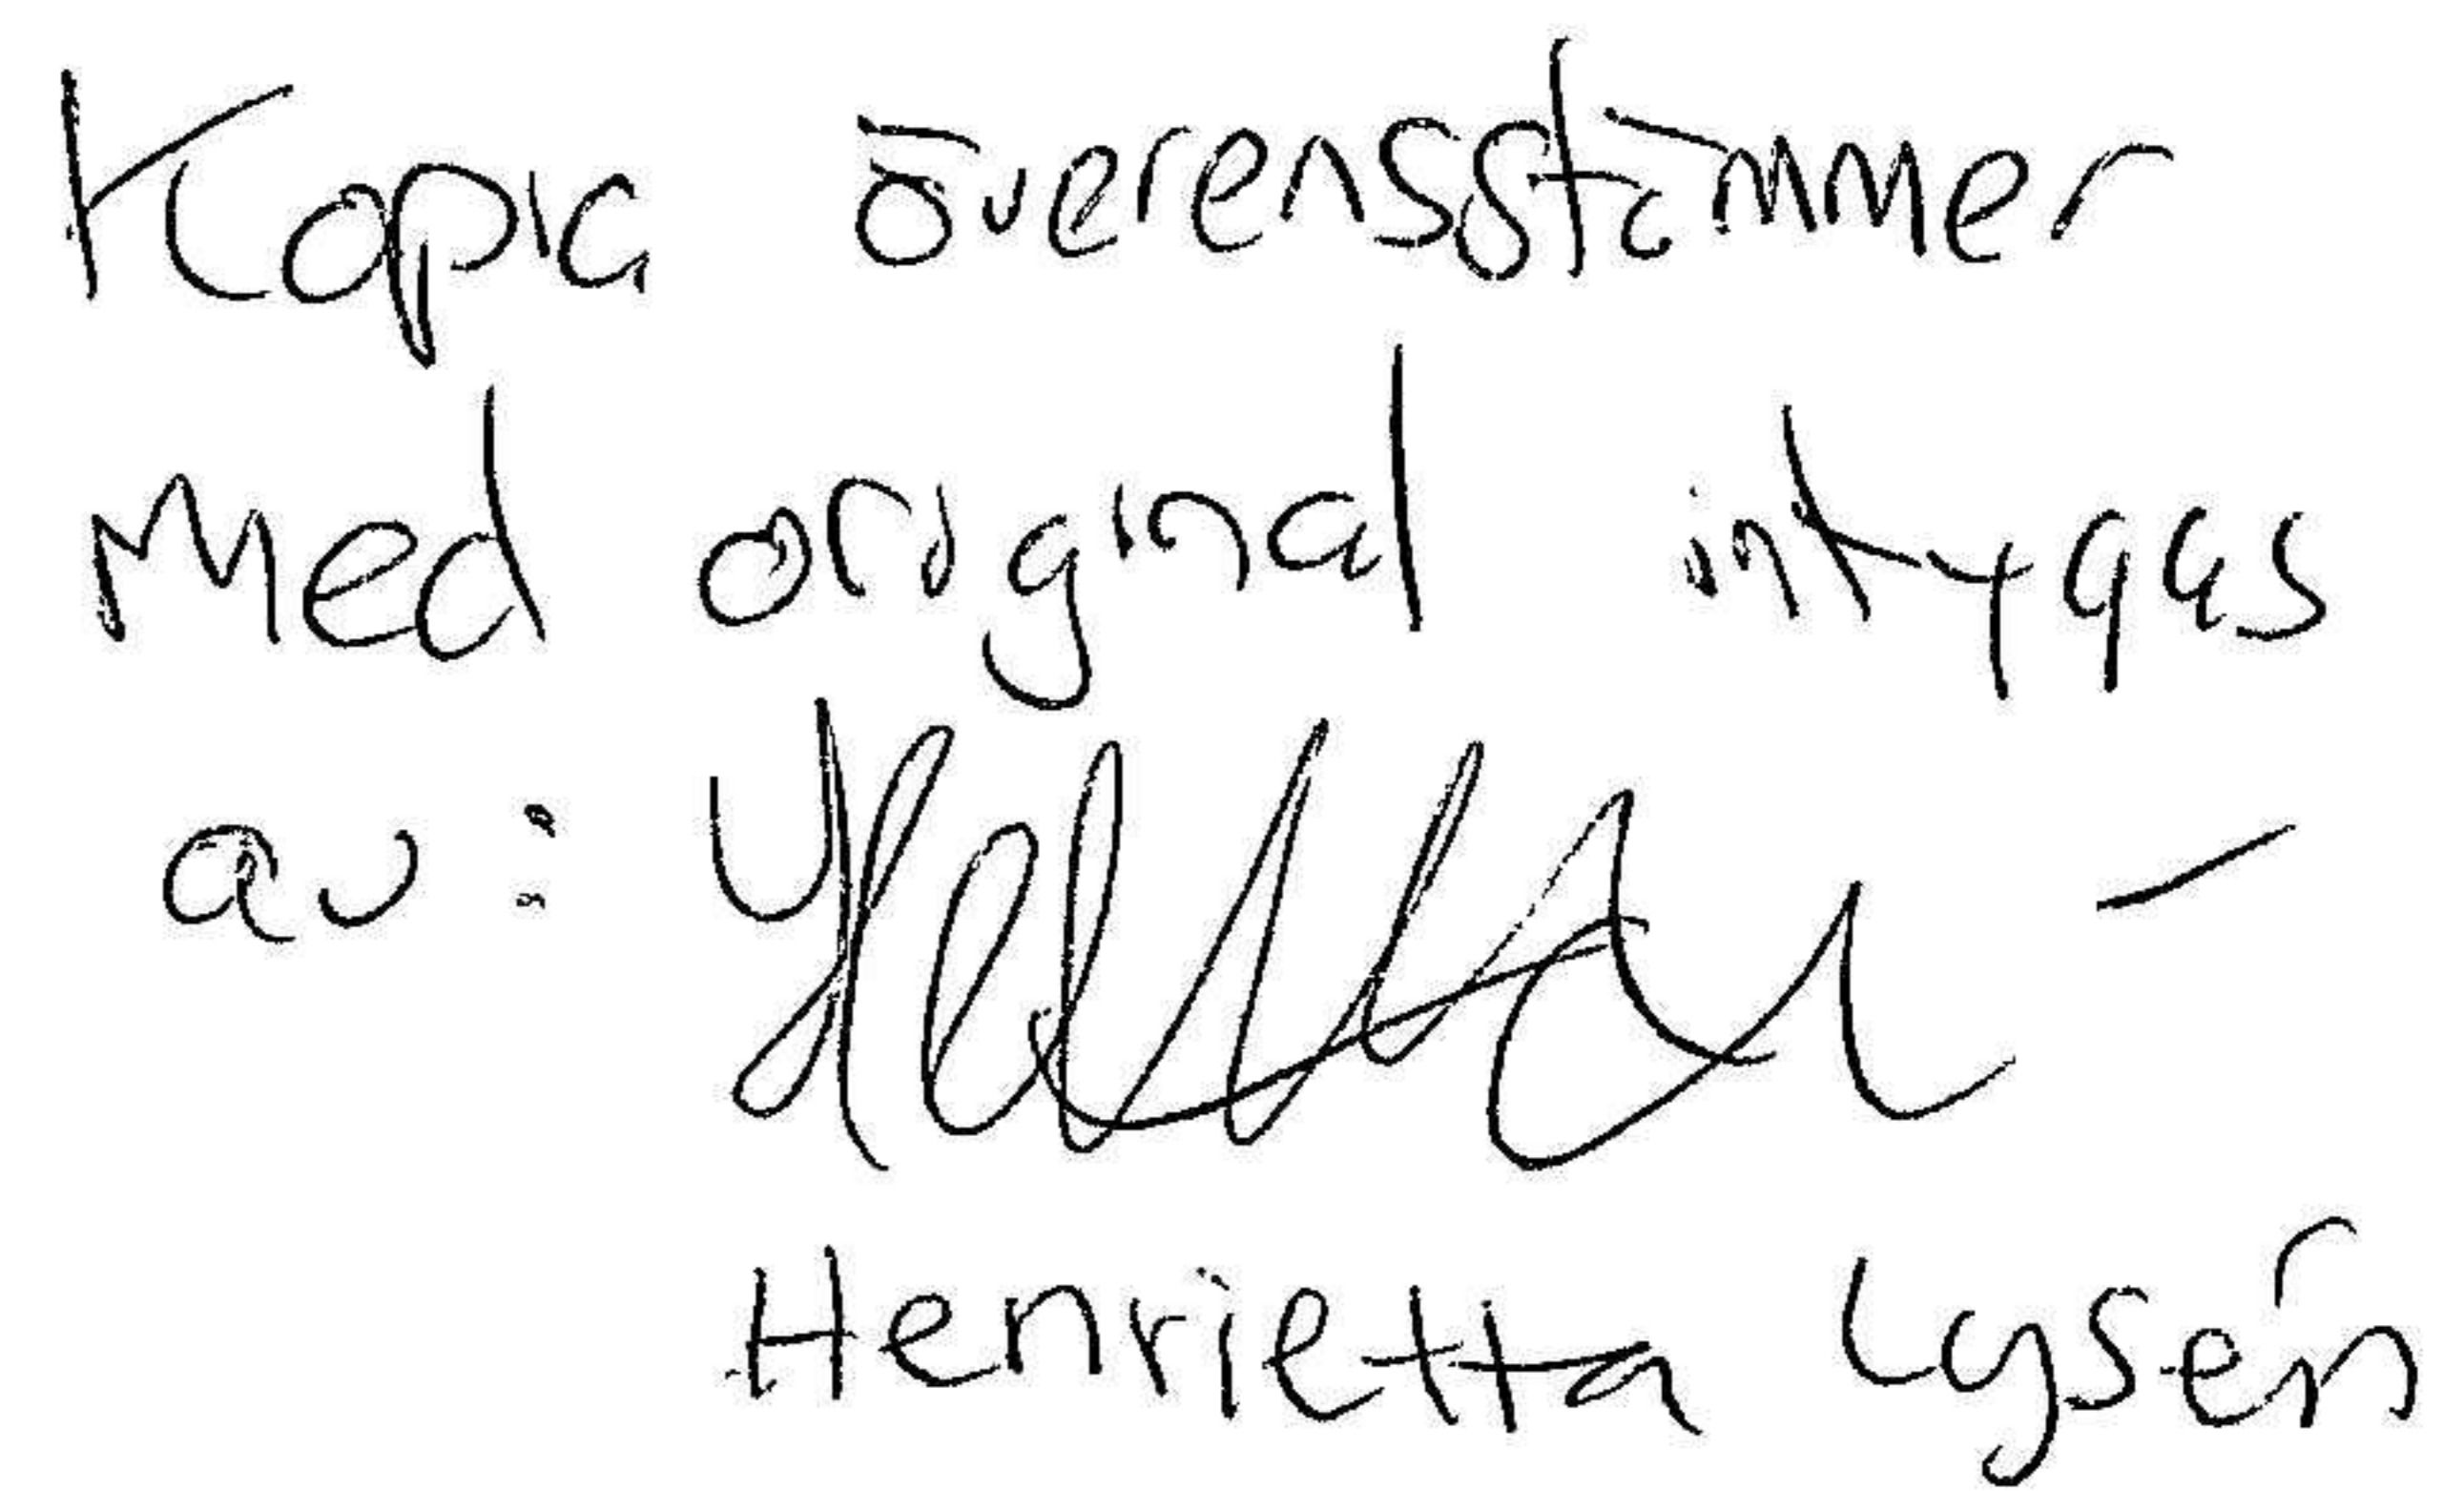 Kopia överensstämmer
med original intygas
av:
Henrietta Lysén